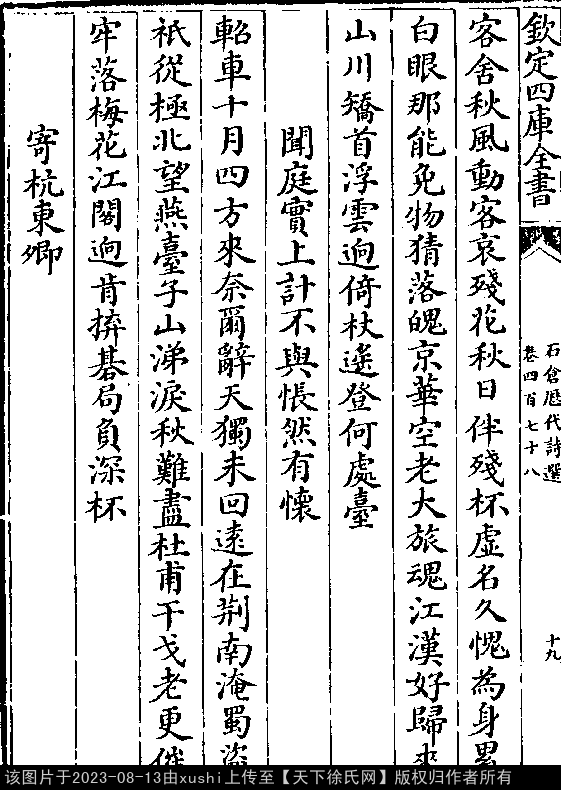 欽定四庫全書
石倉歴代詩選
卷四百七十八
十九
客舍秋風動客哀殘花秋日伴殘杯虚名久愧為身累
白眼那能免物猜落魄京華空老大旅魂江漢好歸來
山川矯首浮雲逈倚杖遙登何處臺
聞庭實上計不與悵然有懷
軺車十月四方來奈爾辭天獨未回逺在荆南淹蜀盗
祇從極北望燕臺子山涕淚秋難盡杜甫干戈老更催
牢落梅花江閣逈肯拚碁局負深杯
寄杭東卿
该图片于2023-08-13由xushi上传至【天下徐氏网】版权归作者所有